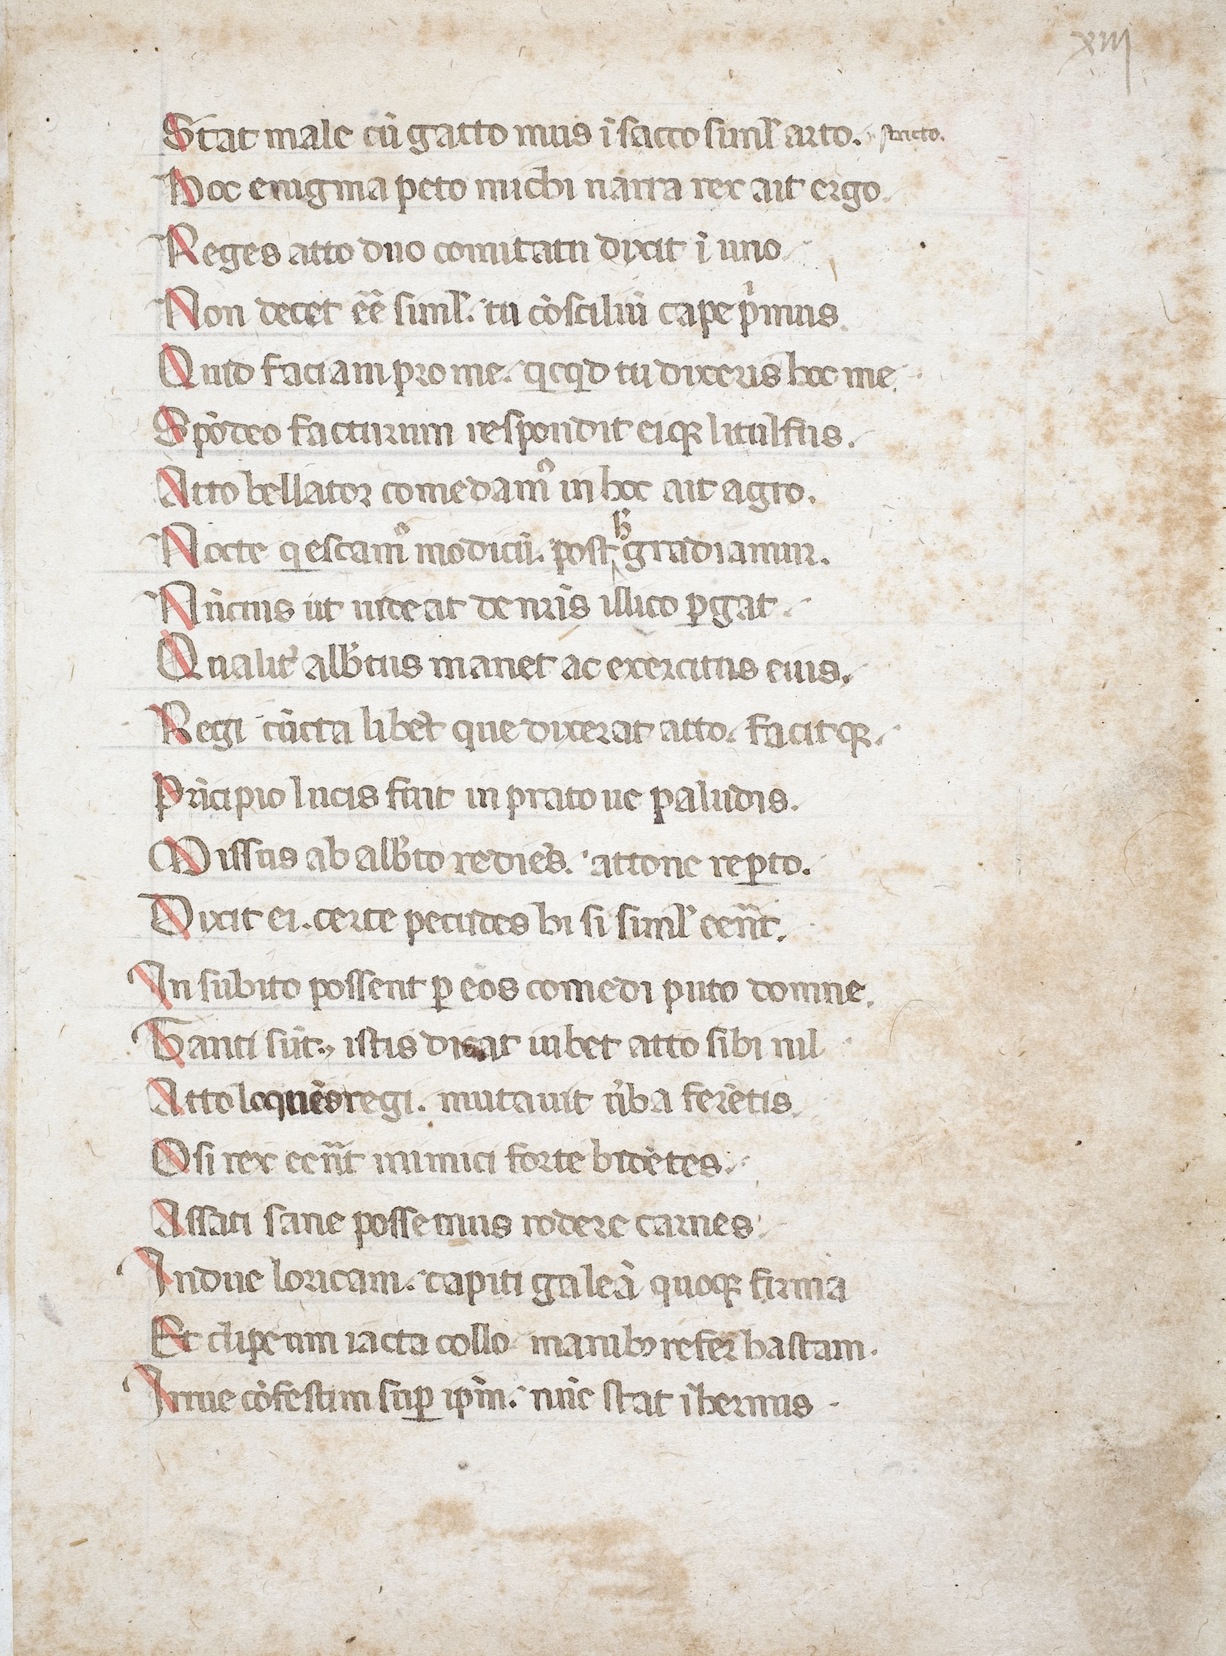 xiij
Stat male cū gatto mus ī sacco siml̉ arto. stricto.
Hoc enigma peto michi narra rex ait ergo.
Reges atto duo comitatu dixit ī uno.
Non decet eē̄ siml̉. tu cōsciliū cape pͥmus.
Quid faciam pro me. qͥcqͥd tu dixeris hoc me.
Spōdeo facturum respondit eiqꝫ litulfus.
Atto bellator comedamꝰ in hoc ait agro.
Nocte qͥescamꝰ modicū. post h̄ gradiamur.
Nūcius ut uideat de nr̄is illico ꝑgat.
Qualit̉ alb̄tus manet ac exercitus eius.
Regi cūcta libēt que dixerat atto. facitqꝫ.
Pͥncipio lucis fuit in prato ue paludis.
Missus ab alb̄to rediēs. attone reꝑto.
Dixit ei. certe pecudes hi si siml̉ eēnt.
In subito possent ꝑ eos comedi puto domne.
Tanti sūt. istis dicat iubet atto sibi nil
Atto loquēs regi. mutauit ūba ferētis.
O si rex eēnt inimici forte bidētes.
Assati sane possemus rodere carnes.
Indue loricam. capiti galeā quoqꝫ firma
Et clipeum iacta collo manibꝫ refer hastam.
Irrue cōfestim suꝑ ip̄m. nūc stat īhermus.